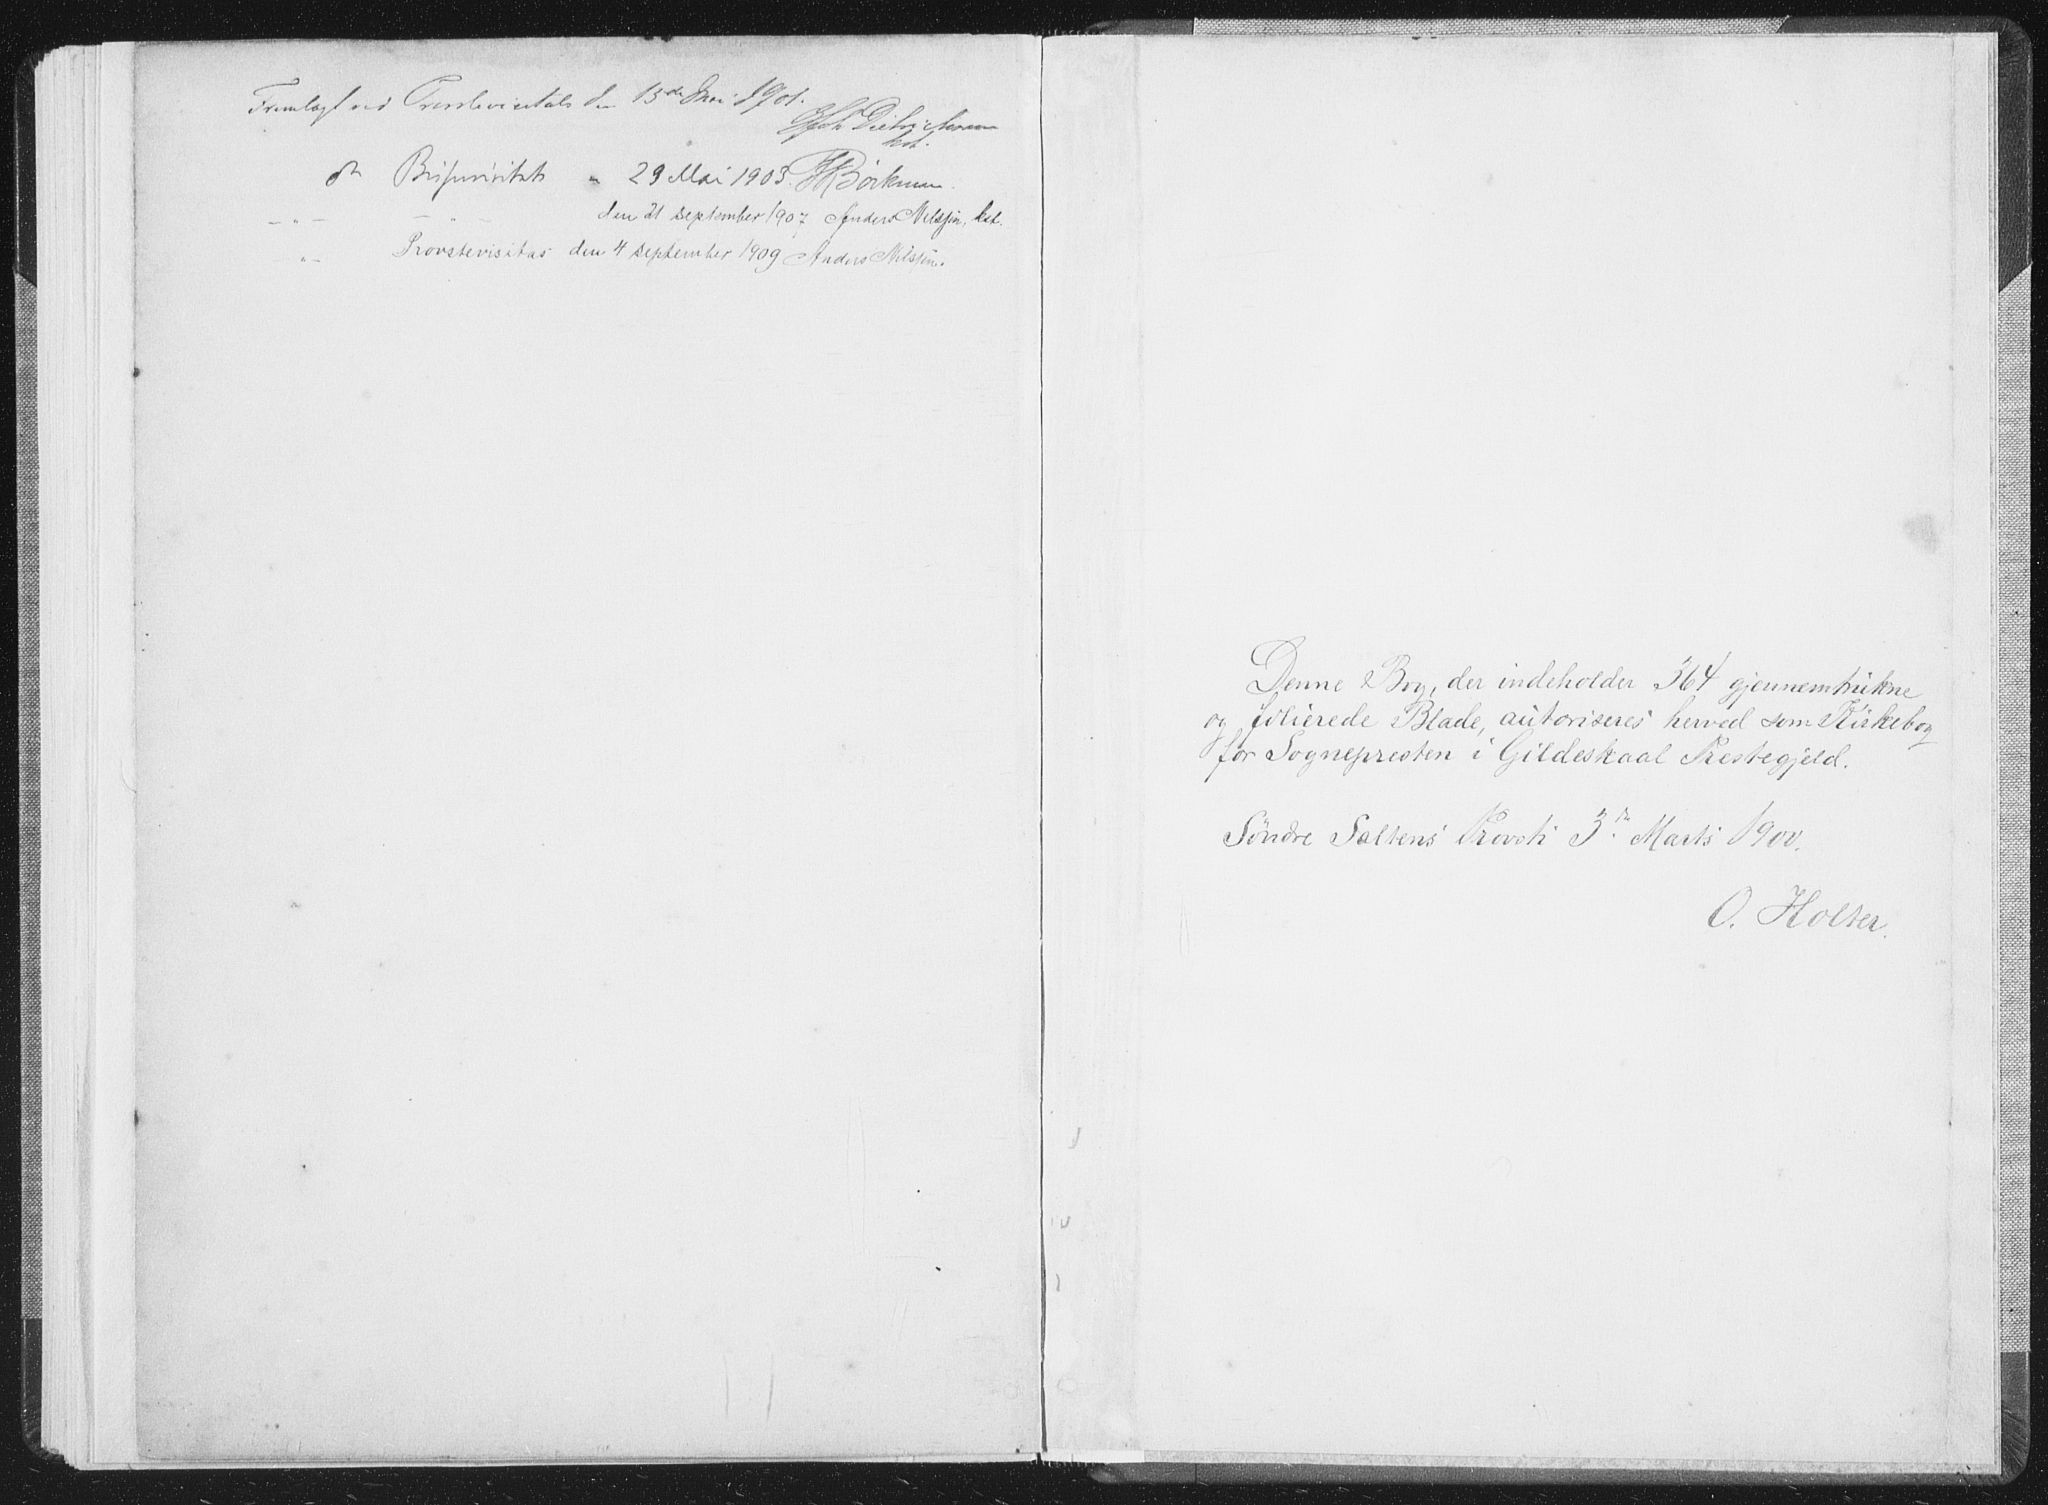 Fremlagt ved Provstevisitats den 15de Mai 1901.
Dietrichson
kst.
do Bispevisitats " 29 Mai 1903. Børkman.
— " — — " — den 21 september 1907 Anders Nilssen, kst.
— " — Provstevisitas den 4 september 1909 Anders Nilssen.
Denne Bog, der indeholder 364 gjennemtrukne
og folierede Blade, autoriseres herved som Kirkebog
for Sognepresten i Gildeskaal Prestegjeld.
Søndre Saltens Provsti 3die Marts 1900.
O. Holter.